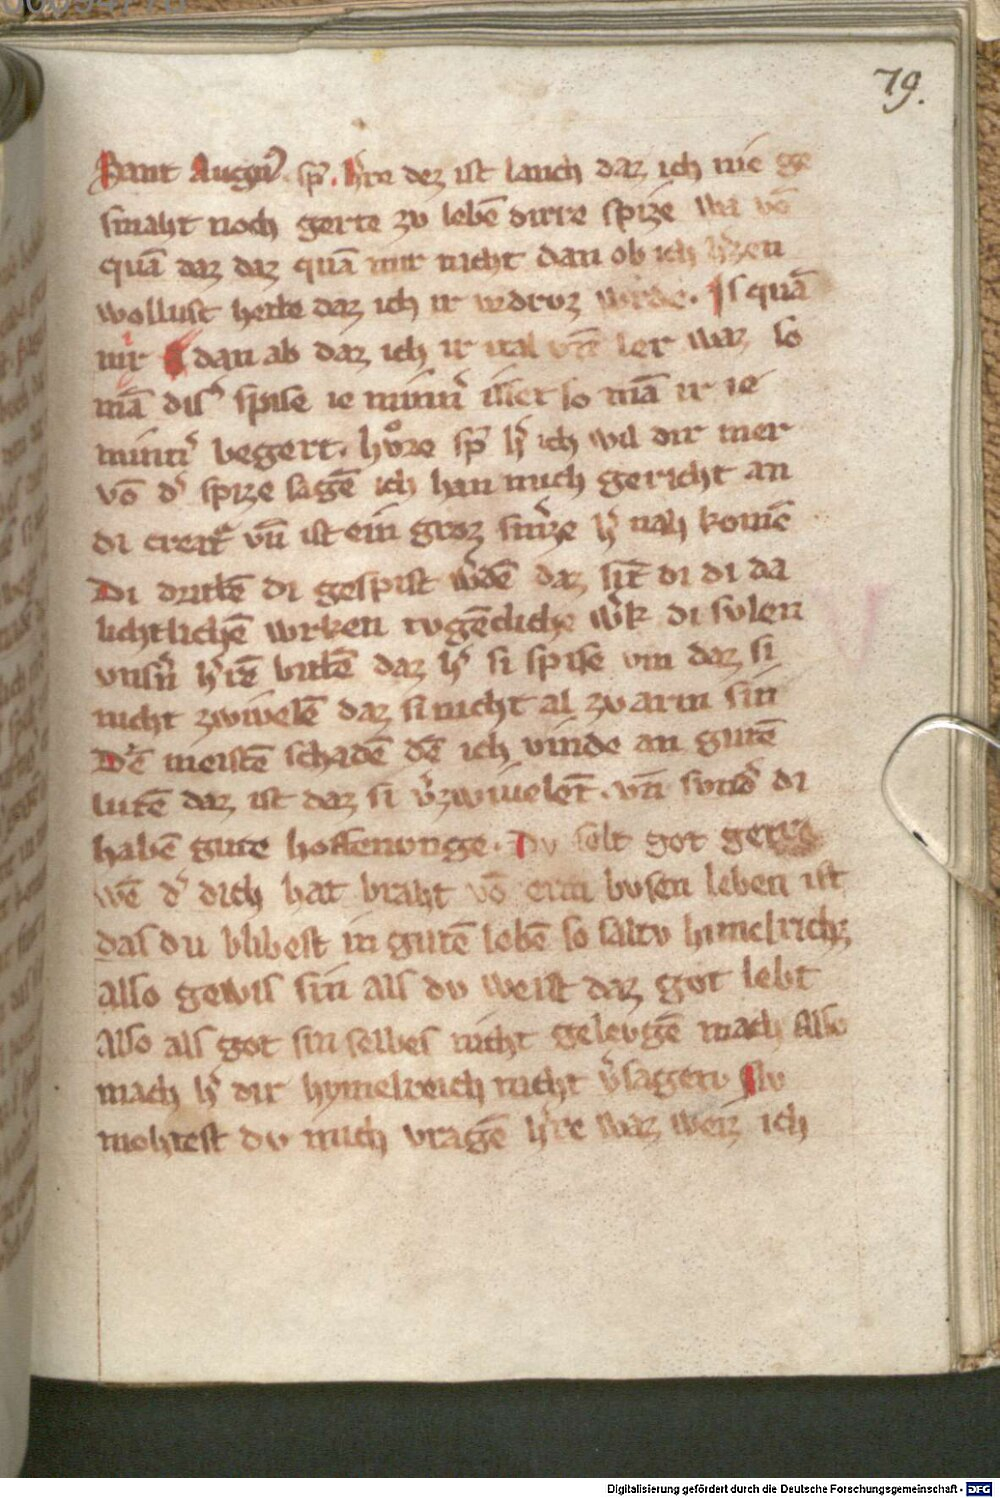 79.
Sant Augu᷒. sp̄. h̓re dez ist lanch daz ich nie ge
smaht noch gerte zv lebē dirre spize wā vō
quā daz daz quā mir nicht dan ob ich
wollust hette daz ich ir vrdroz wrde. Is quā
mir dan ab daz ich ir ital vn̄ ler waz so
mā dis᷒ spise ie minn᷒ isset so mā ir ie
minn᷒ begert. hoͮre sp̄ h᷒ ich wil dir mer
vō d᷒ spize sagē ich han mich gericht an
di creat᷒ vn̄ ist ein groz h᷒ nah komē
Di di gespist w᷒dē daz sīt di di da
lichtlichē wrken tvgēcliche w᷒k di svlen
vns᷒n h᷒rē bitē daz h᷒ si spise vm daz si
nicht zwivelē daz si nicht al zv arm sin
Dē meistē schadē dē ich vinde an gutē
lutē daz ist daz si v᷒zwiuelēt. vn̄ svnd᷒ di
habē gute hoffenvnge. Dv solt got
wē d᷒ dich hat braht vō eim bvsen leben ist
das du blibest in gutē lebē so saltv himelrichz
also gewis sin als dv weist daz got lebt
Also als got sin selbes nicht gelevgē mach Also
mach h᷒ dir hymelreich nicht v᷒sagen Nv
mohtest dv mich vragē h᷒re waz weiz ich
Digitalisierung gefördert durch die Deutsche Forschungsgemeinschaft - DFG